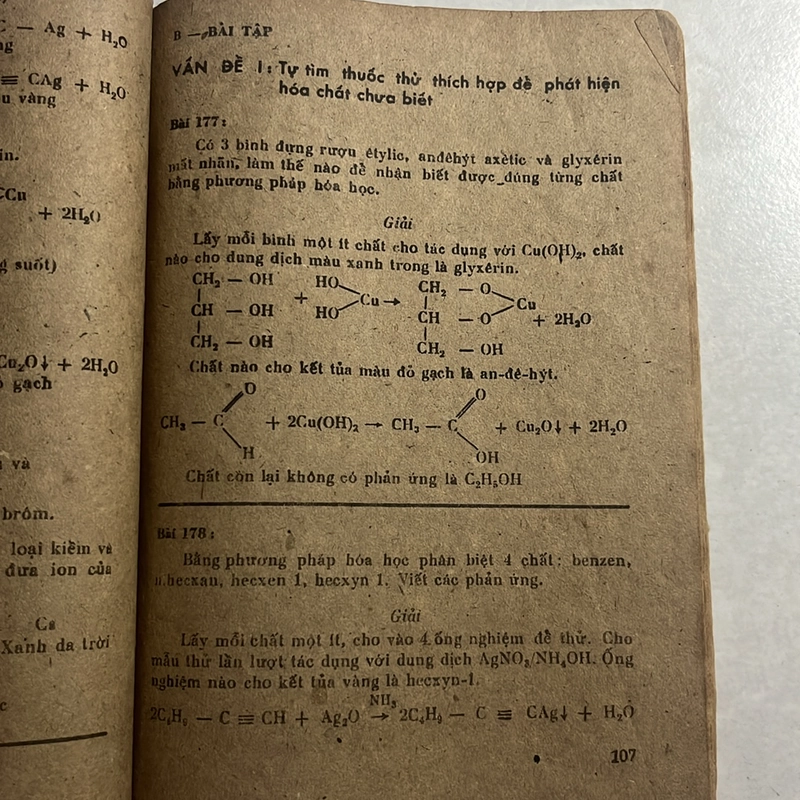 C — Ag + H₂O
ng
≡ CAg + H₂O
u vàng
in.
CCu
+ 2H₂O
g suốt)
Cu₂O↓ + 2H₂O
ỏ gạch
và
brôm.
loại kiềm và
đưa ion của
Ca
Xanh da trời
B — BÀI TẬP
VẤN ĐỀ I: Tự tìm thuốc thử thích hợp đề phát hiện
hóa chất chưa biết
Bài 177:
Có 3 bình đựng rượu êtylic, anđêhýt axêtic và glyxêrin
mất nhãn, làm thế nào đề nhận biết được đúng từng chất
bằng phương pháp hóa học.
Giải
Lấy mỗi bình một ít chất cho tác dụng với Cu(OH)₂, chất
nào cho dung dịch màu xanh trong là glyxêrin.
CH₂ — OH HO CH₂ — O
CH — OH + HO Cu → CH — O Cu + 2H₂O
CH₂ — OH CH₂ — OH
Chất nào cho kết tủa màu đỏ gạch là an-đê-hýt.
O O
CH₃ — C + 2Cu(OH)₂ → CH₃ — C + Cu₂O↓ + 2H₂O
H OH
Chất còn lại không có phản ứng là C₂H₅OH
Bài 178:
Bằng phương pháp hóa học phân biệt 4 chất: benzen,
n.hecxan, hecxen 1, hecxyn 1. Viết các phản ứng.
Giải
Lấy mỗi chất một ít, cho vào 4 ống nghiệm đề thử. Cho
mẫu thử lần lượt tác dụng với dung dịch AgNO₃/NH₄OH. Ống
nghiệm nào cho kết tủa vàng là hecxyn-1.
NH₃
2C₄H₉ — C ≡ CH + Ag₂O → 2C₄H₉ — C ≡ CAg↓ + H₂O
107